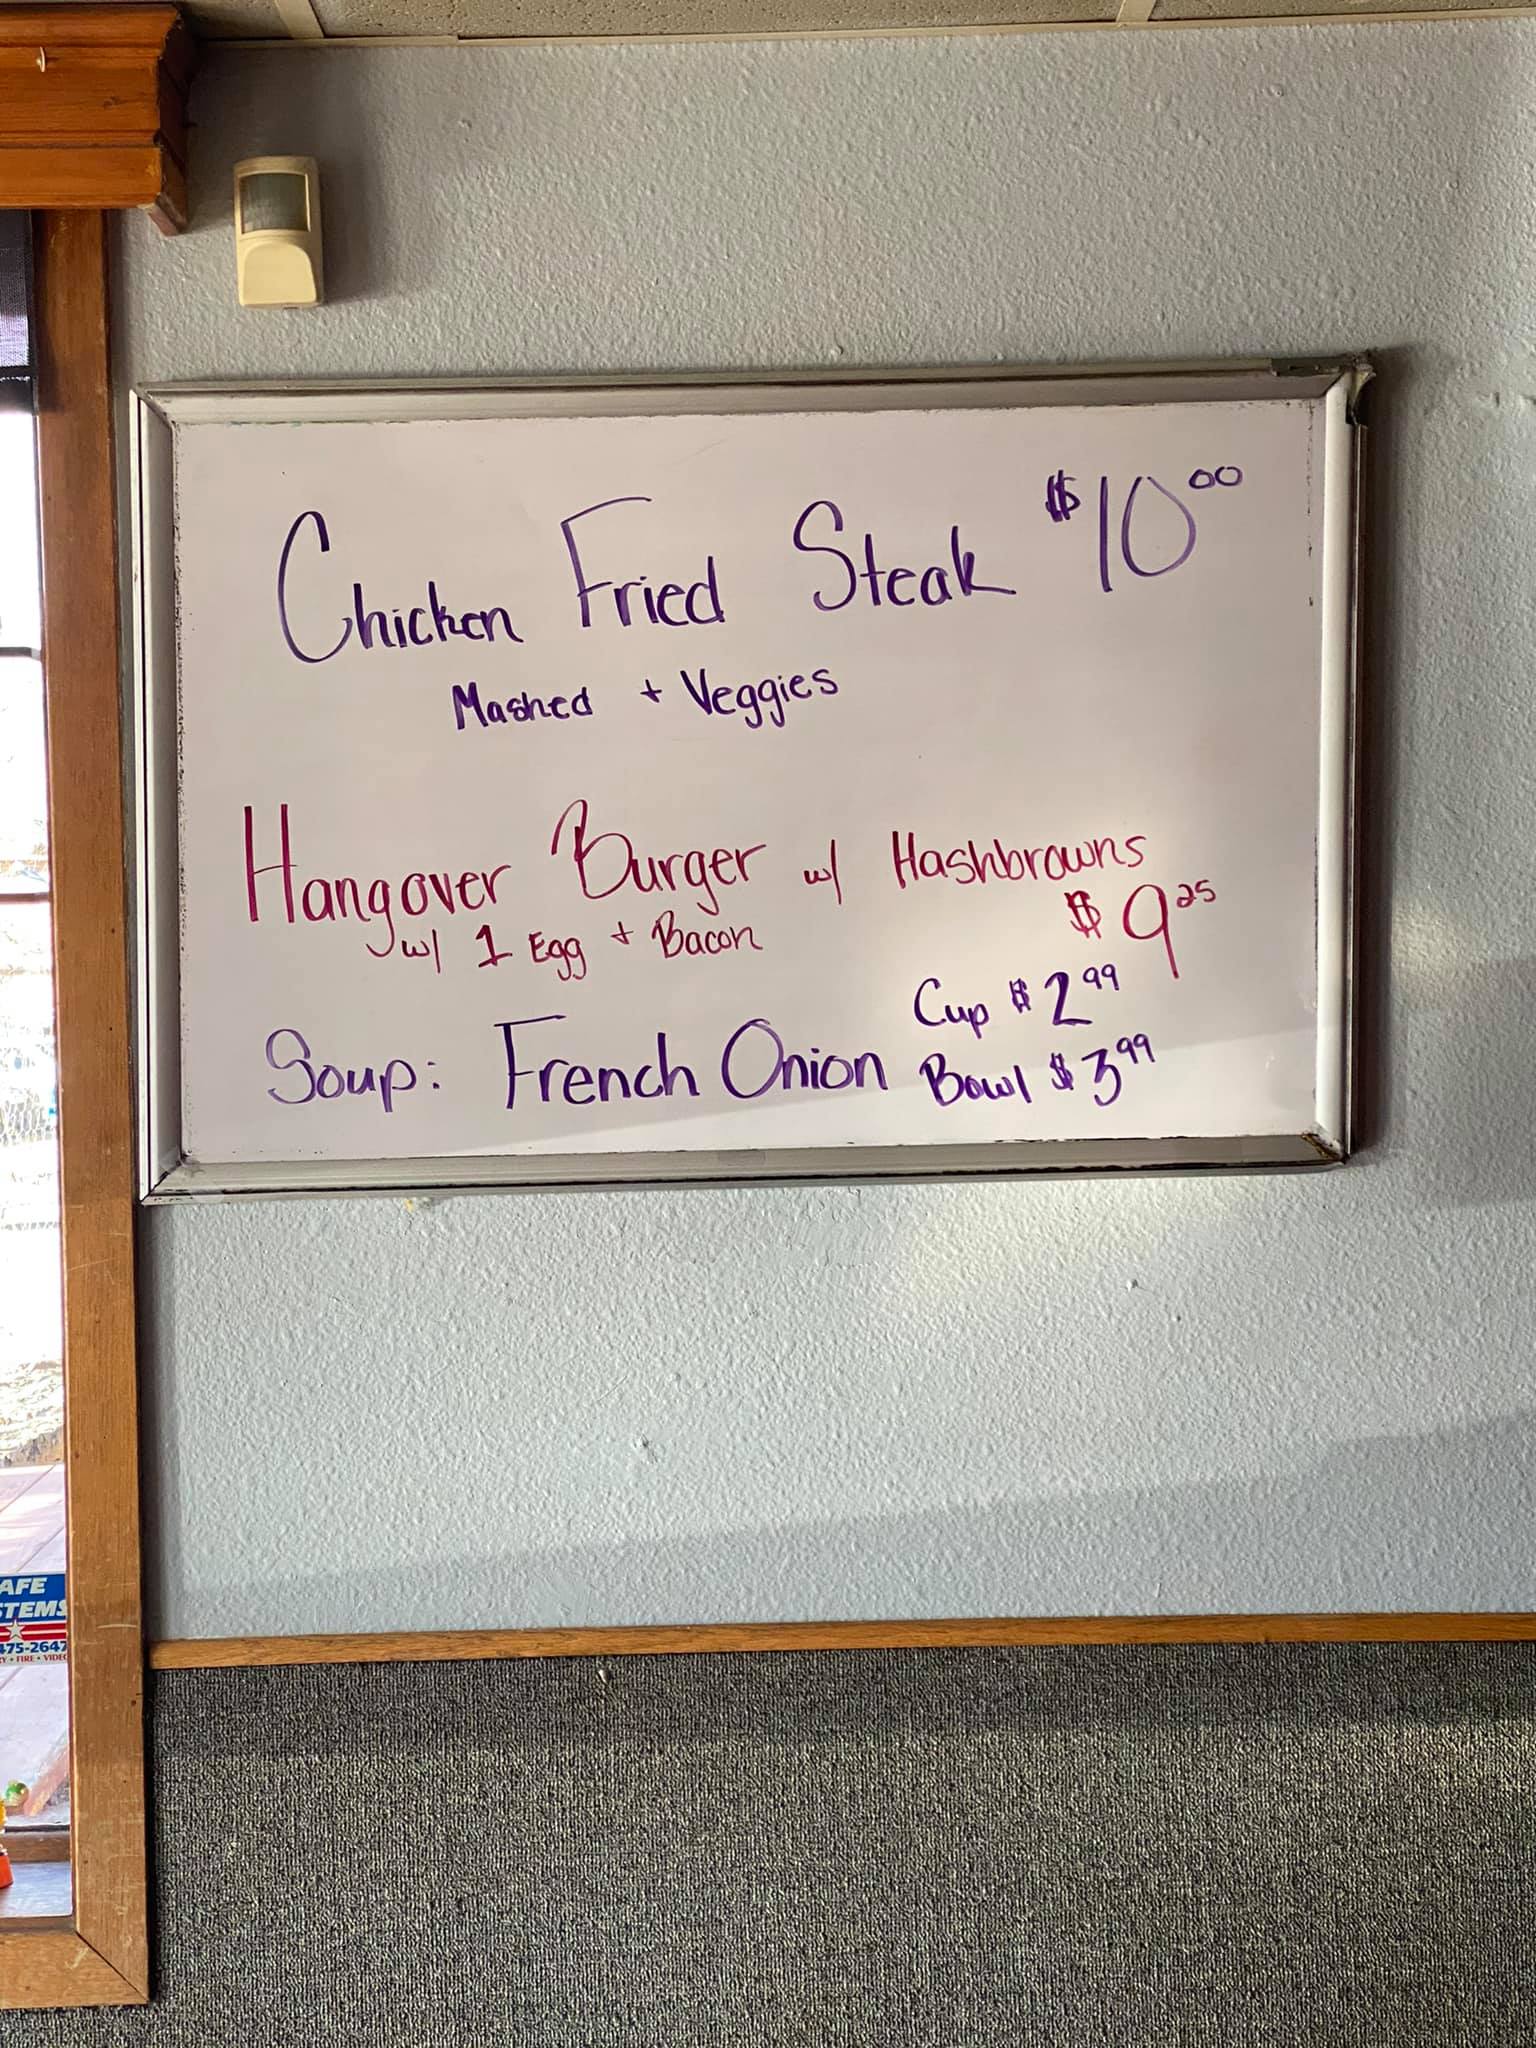 Chicken Fried Steak $10.00
Mashed + Veggies
Hangover Burger w/ Hashbrowns
w/ 1 Egg + Bacon $9.25
Soup: French Onion Cup $2.99
Bowl $3.99
AFE
STEMS
475-2647
RY • FIRE • VIDEO